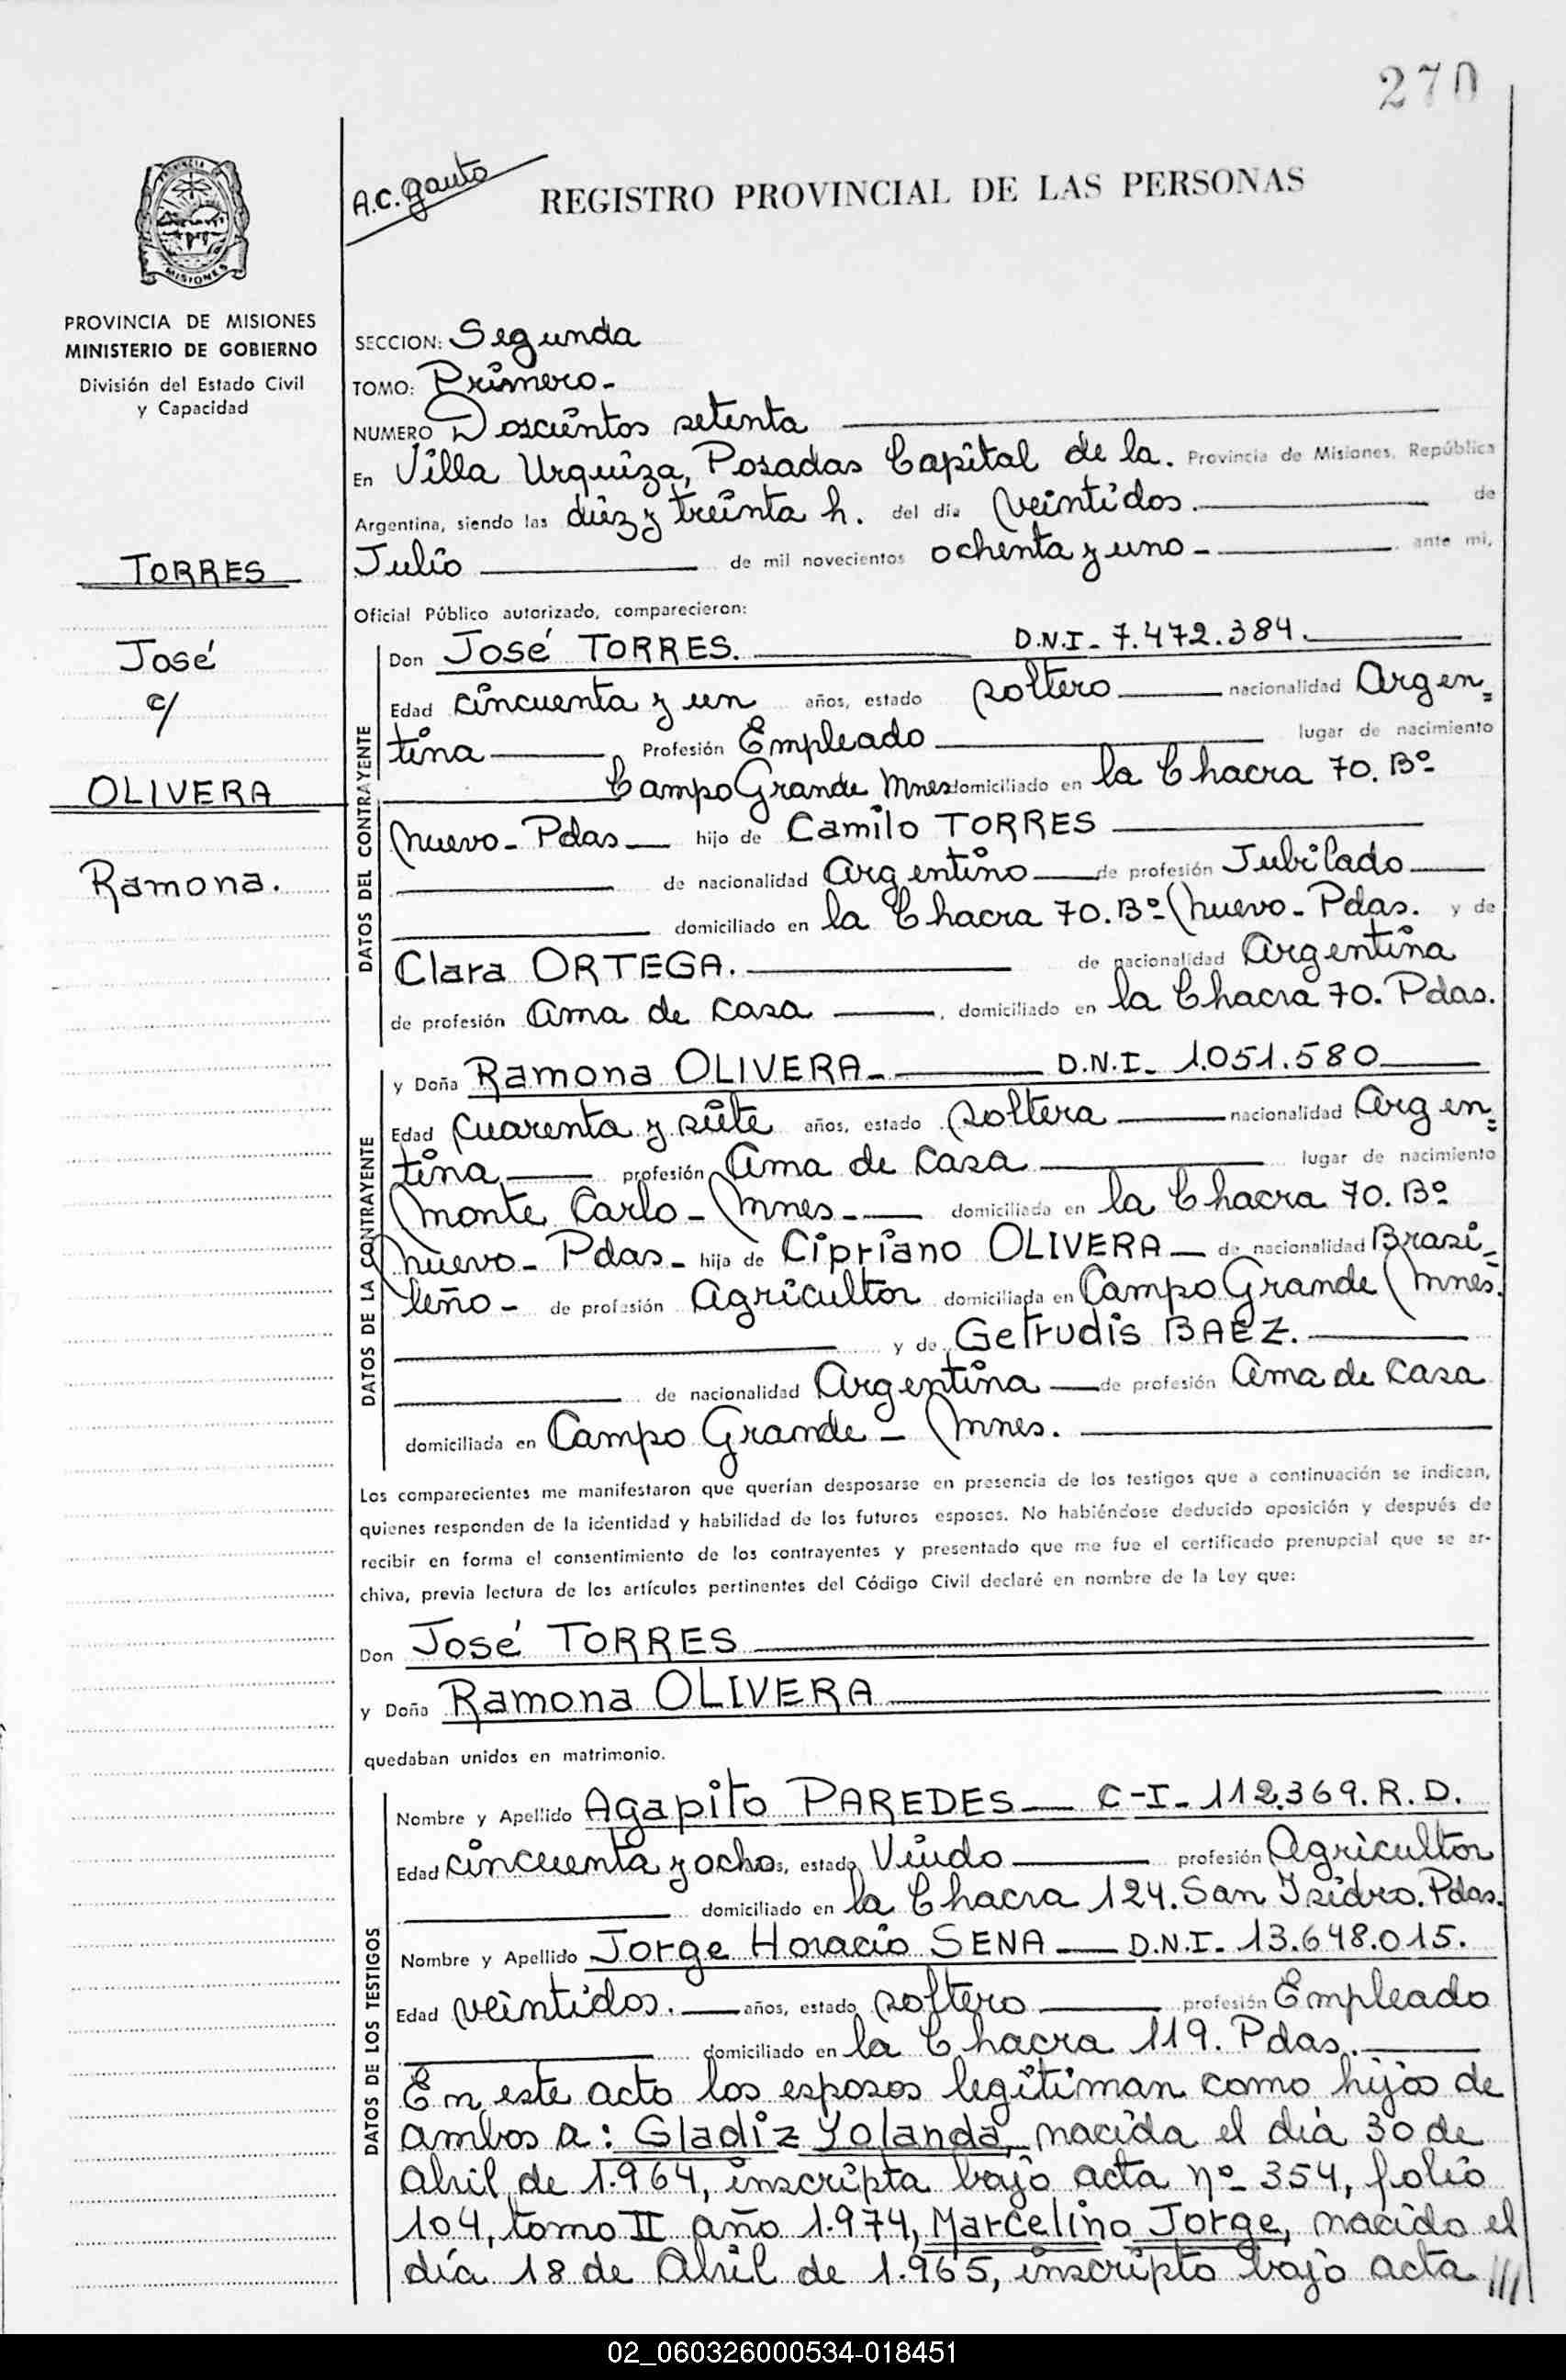 270
A.C. Gauto
REGISTRO PROVINCIAL DE LAS PERSONAS
PROVINCIA
MISIONES
PROVINCIA DE MISIONES
MINISTERIO DE GOBIERNO
División del Estado Civil
y Capacidad
TORRES
José
c/
OLIVERA
Ramona.
SECCION: Segunda
TOMO: Primero-
NUMERO Doscientos setenta
En Villa Urquiza, Posadas Capital de la. Provincia de Misiones, República
Argentina, siendo las diez y treinta h. del día veintidos. de
Julio de mil novecientos ochenta y uno- ante mi,
Oficial Público autorizado, comparecieron:
DATOS DEL CONTRAYENTE
Don José TORRES. D.N.I- 7.472.384.
Edad cincuenta y un años, estado soltero nacionalidad Argen=
tina Profesión Empleado lugar de nacimiento
Campo Grande Mnes domiciliado en la Chacra 70. Bº
Nuevo- Pdas hijo de Camilo TORRES
de nacionalidad Argentino de profesión Jubilado
domiciliado en la Chacra 70. Bº Nuevo- Pdas. y de
Clara ORTEGA. de nacionalidad Argentina
de profesión Ama de Casa , domiciliado en la Chacra 70. Pdas.
DATOS DE LA CONTRAYENTE
y Doña Ramona OLIVERA- D.N.I- 1.051.580
Edad cuarenta y siete años, estado soltera nacionalidad Argen=
tina profesión Ama de Casa lugar de nacimiento
Monte Carlo- Mnes- domiciliada en la Chacra 70. Bº
Nuevo- Pdas- hija de Cipriano OLIVERA de nacionalidad Brasi-
leño- de profesión Agricultor domiciliada en Campo Grande Mnes.
y de Getrudis BAEZ.
de nacionalidad Argentina de profesión Ama de Casa
domiciliada en Campo Grande- Mnes.
Los comparecientes me manifestaron que querían desposarse en presencia de los testigos que a continuación se indican,
quienes responden de la identidad y habilidad de los futuros esposos. No habiéndose deducido oposición y después de
recibir en forma el consentimiento de los contrayentes y presentado que me fue el certificado prenupcial que se ar-
chiva, previa lectura de los artículos pertinentes del Código Civil declaré en nombre de la Ley que:
Don José TORRES
y Doña Ramona OLIVERA
quedaban unidos en matrimonio.
DATOS DE LOS TESTIGOS
Nombre y Apellido Agapito PAREDES C-I- 112.369. R.D.
Edad cincuenta y ocho años, estado Viudo profesión Agricultor
domiciliado en la Chacra 124. San Isidro. Pdas.
Nombre y Apellido Jorge Horacio SENA D.N.I- 13.648.015.
Edad veintidos. años, estado soltero profesión Empleado
domiciliado en la Chacra 119. Pdas.
En este acto los esposos legitiman como hijos de
ambos a: Gladiz Yolanda, nacida el dia 30 de
Abril de 1.964, inscripta bajo acta nº 354, folio
104, tomo II año 1.974, Marcelino Jorge, nacido el
día 18 de Abril de 1.965, inscripto bajo acta ///
02_060326000534-018451